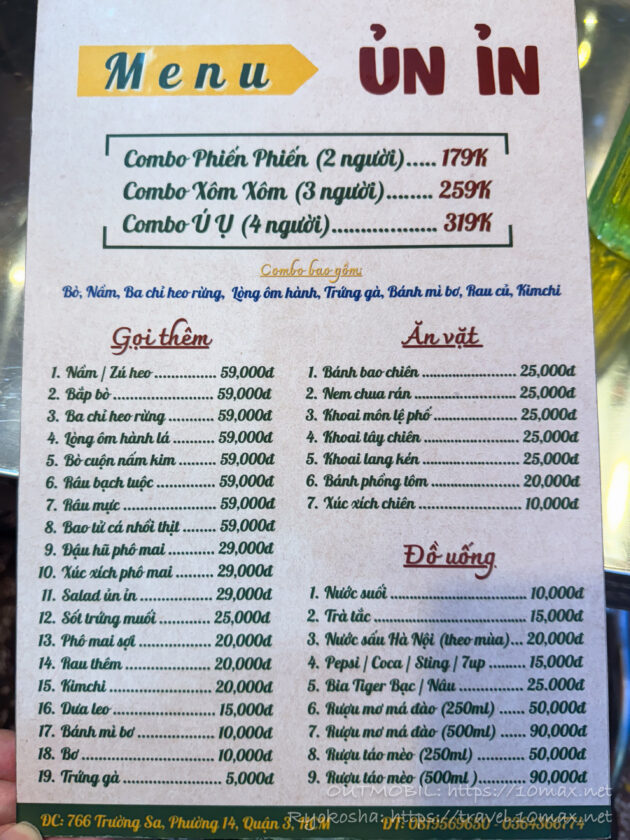 Menu ỦN ỈN
Combo Phiến Phiến (2 người)..... 179K
Combo Xôm Xôm (3 người)........ 259K
Combo Ú Ụ (4 người)................... 319K
Combo bao gồm:
Bò, Nầm, Ba chỉ heo rừng, Lòng ôm hành, Trứng gà, Bánh mì bơ, Rau củ, Kimchi
Gọi thêm
1. Nầm / Zú heo ............... 59,000đ
2. Bắp bò ........................ 59,000đ
3. Ba chỉ heo rừng ............ 59,000đ
4. Lòng ôm hành lá .......... 59,000đ
5. Bò cuộn nấm kim ......... 59,000đ
6. Râu bạch tuộc .............. 59,000đ
7. Râu mực ...................... 59,000đ
8. Bao tử cá nhồi thịt ....... 59,000đ
9. Đậu hũ phô mai ........... 29,000đ
10. Xúc xích phô mai ......... 29,000đ
11. Salad ủn ỉn .................. 29,000đ
12. Sốt trứng muối ............ 25,000đ
13. Phô mai sợi .................. 20,000đ
14. Rau thêm ..................... 20,000đ
15. Kimchi ......................... 20,000đ
16. Dưa leo ........................ 15,000đ
17. Bánh mì bơ .................. 10,000đ
18. Bơ ................................ 10,000đ
19. Trứng gà ...................... 5,000đ
Ăn vặt
1. Bánh bao chiên .................. 25,000đ
2. Nem chua rán .................... 25,000đ
3. Khoai môn lệ phố ............... 25,000đ
4. Khoai tây chiên .................. 25,000đ
5. Khoai lang kén ................... 25,000đ
6. Bánh phồng tôm ................. 20,000đ
7. Xúc xích chiên .................... 10,000đ
Đồ uống
1. Nước suối ........................... 10,000đ
2. Trà tắc ............................... 15,000đ
3. Nước sấu Hà Nội (theo mùa)... 20,000đ
4. Pepsi / Coca / Sting / 7up ....... 15,000đ
5. Bia Tiger Bạc / Nâu ............. 25.000đ
6. Rượu mơ má đào (250ml) ..... 50,000đ
7. Rượu mơ má đào (500ml) ..... 90,000đ
8. Rượu táo mèo (250ml) .......... 50,000đ
9. Rượu táo mèo (500ml ) .......... 90,000đ
OUTMOBIL: https://10max.net
Ryokosha: https://travel.10max.net
ĐC: 766 Trường Sa, Phường 14, Quận 3, HCM ĐT: